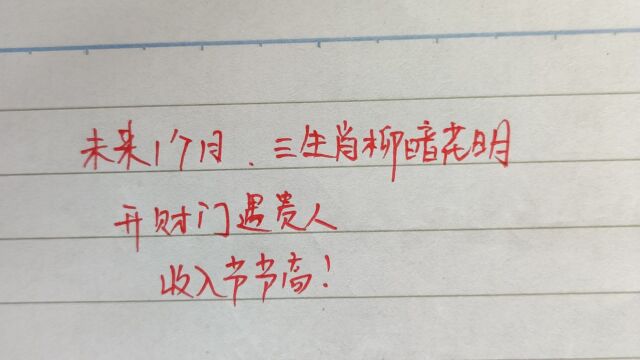 未来1个月、三生肖柳暗花明
开财门遇贵人
收入节节高!